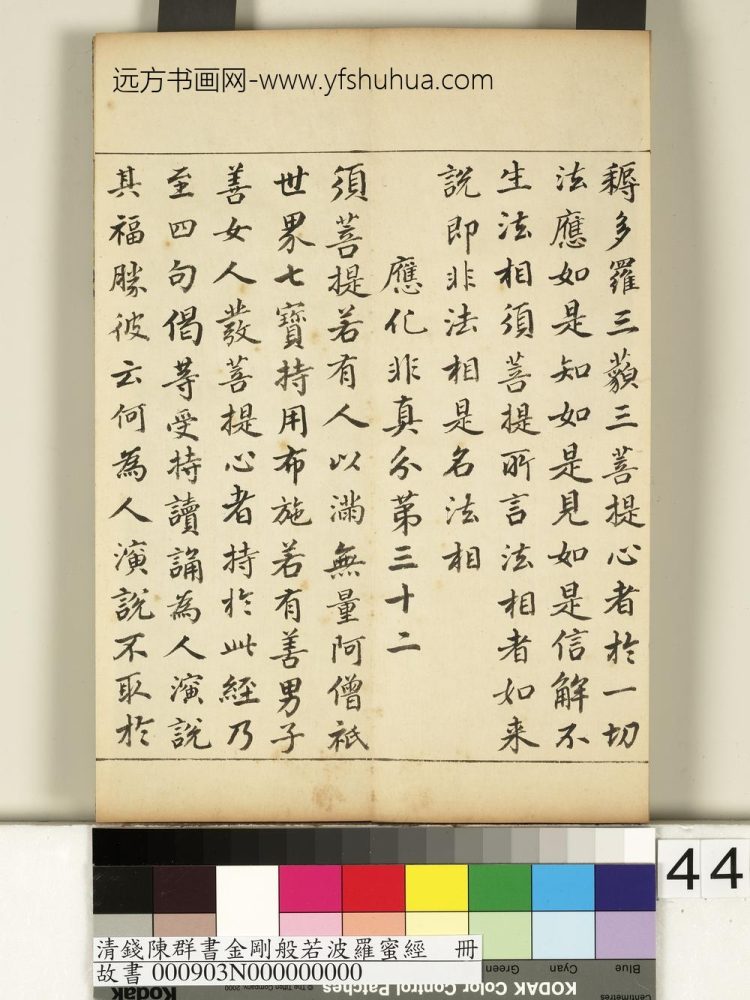 远方书画网-www.yfshuhua.com
耨多羅三藐三菩提心者於一切
法應如是知如是見如是信解不
生法相須菩提所言法相者如来
說即非法相是名法相
應化非真分第三十二
須菩提若有人以滿無量阿僧祇
世界七寶持用布施若有善男子
善女人發菩提心者持於此經乃
至四句偈等受持讀誦為人演說
其福勝彼云何為人演說不取於
44
清錢陳群書金剛般若波羅蜜經 冊
故書 000903N000000000
Kodak
© The Tiffen Company, 2000
KODAK Color Control Patches
Green
Cyan
Blue
Centimetres